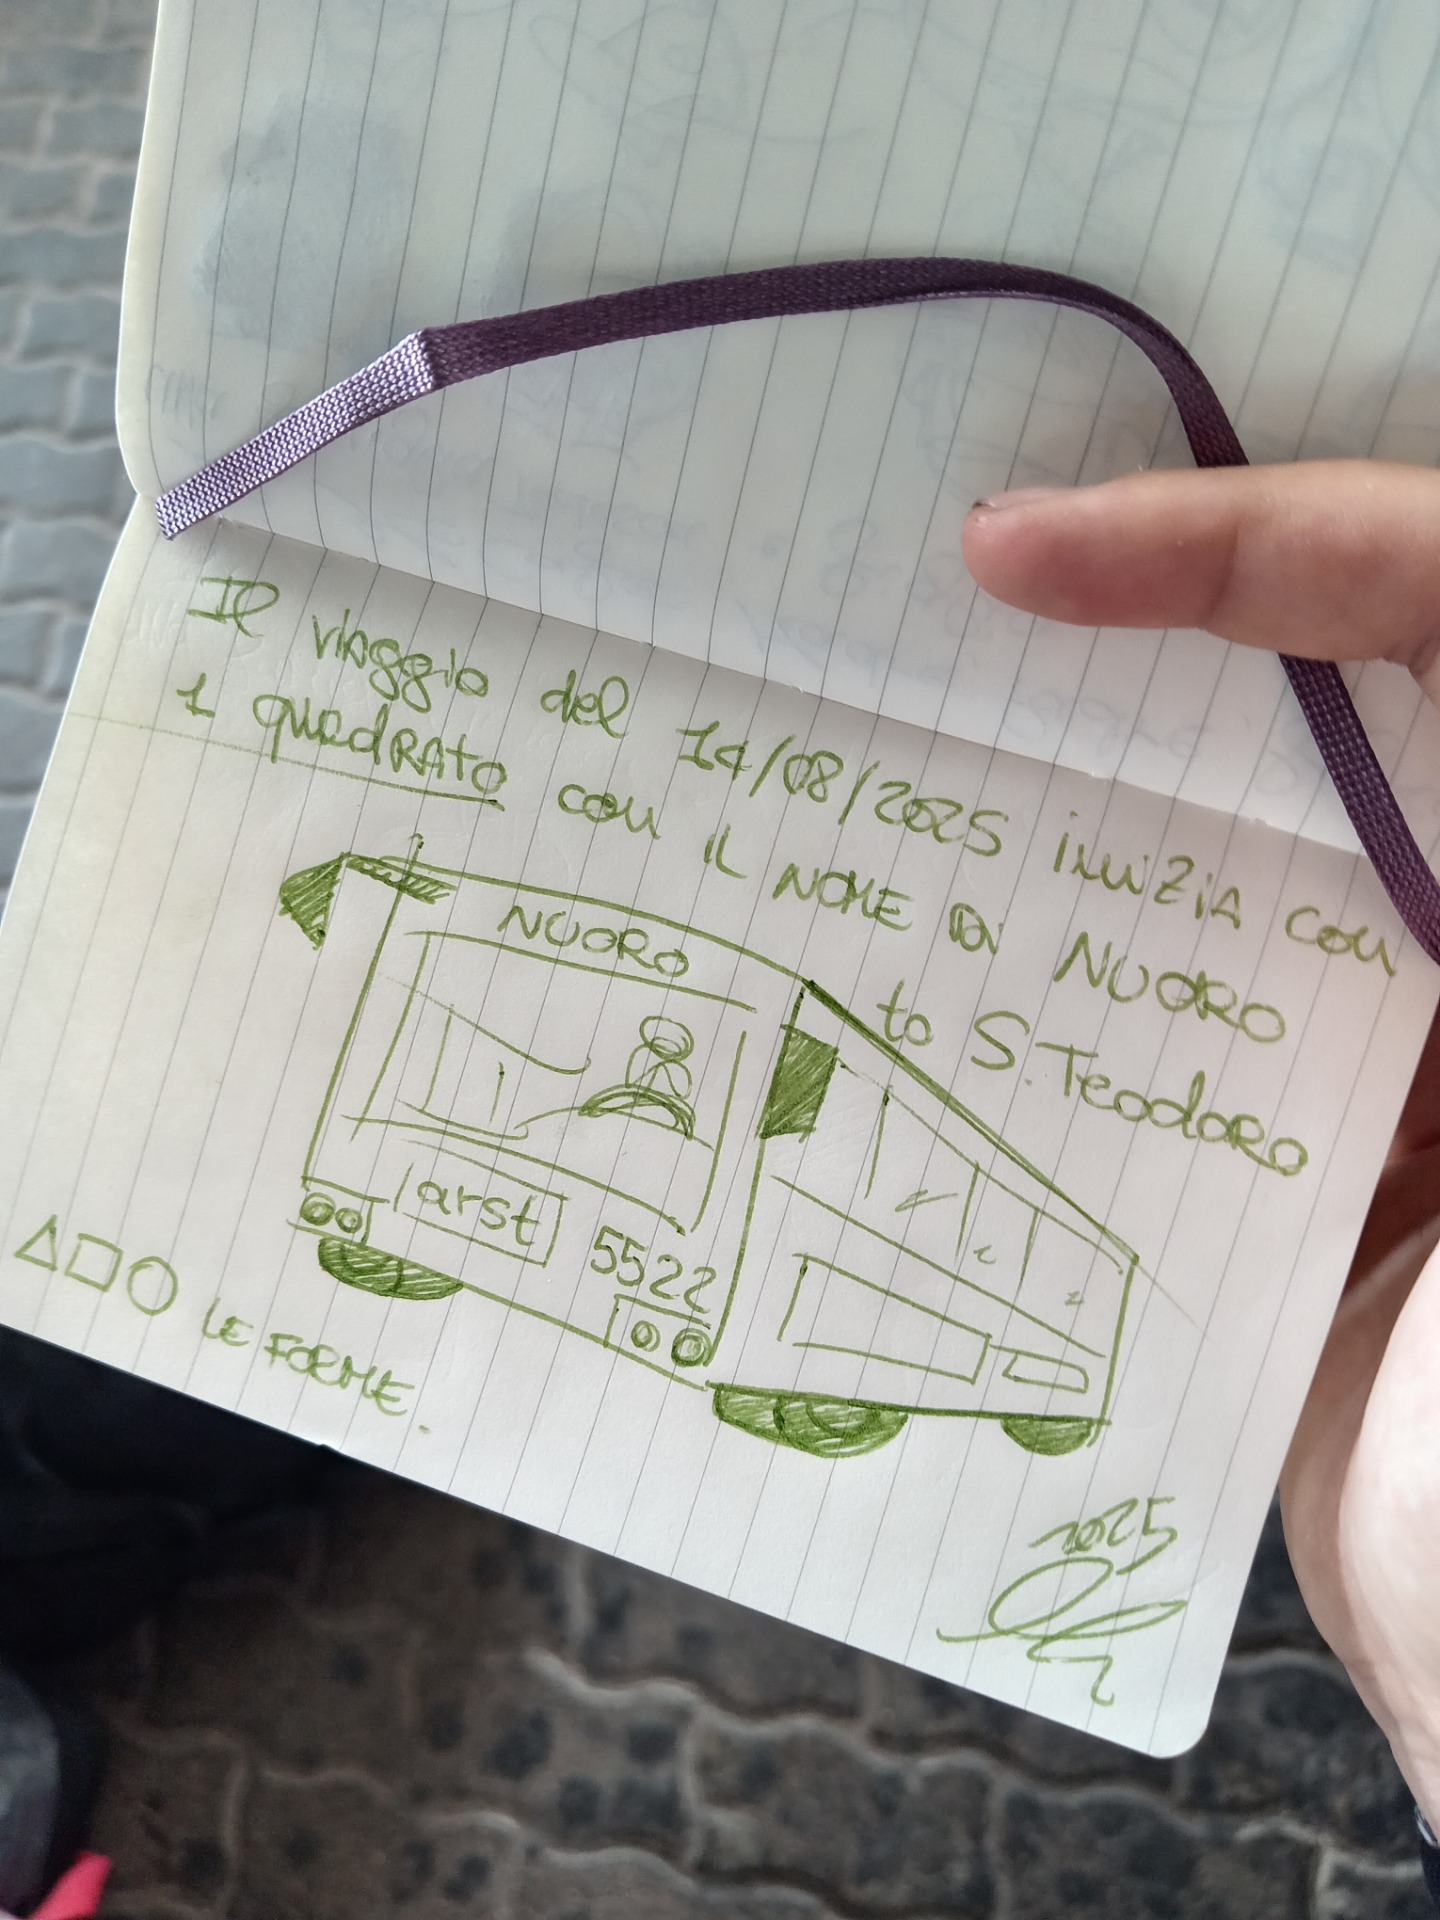 Il viaggio del 14/08/2025 inizia con
1 quadrato con il nome di NUORO
to S. Teodoro
NUORO
arst
5522
LE FORME.
2025